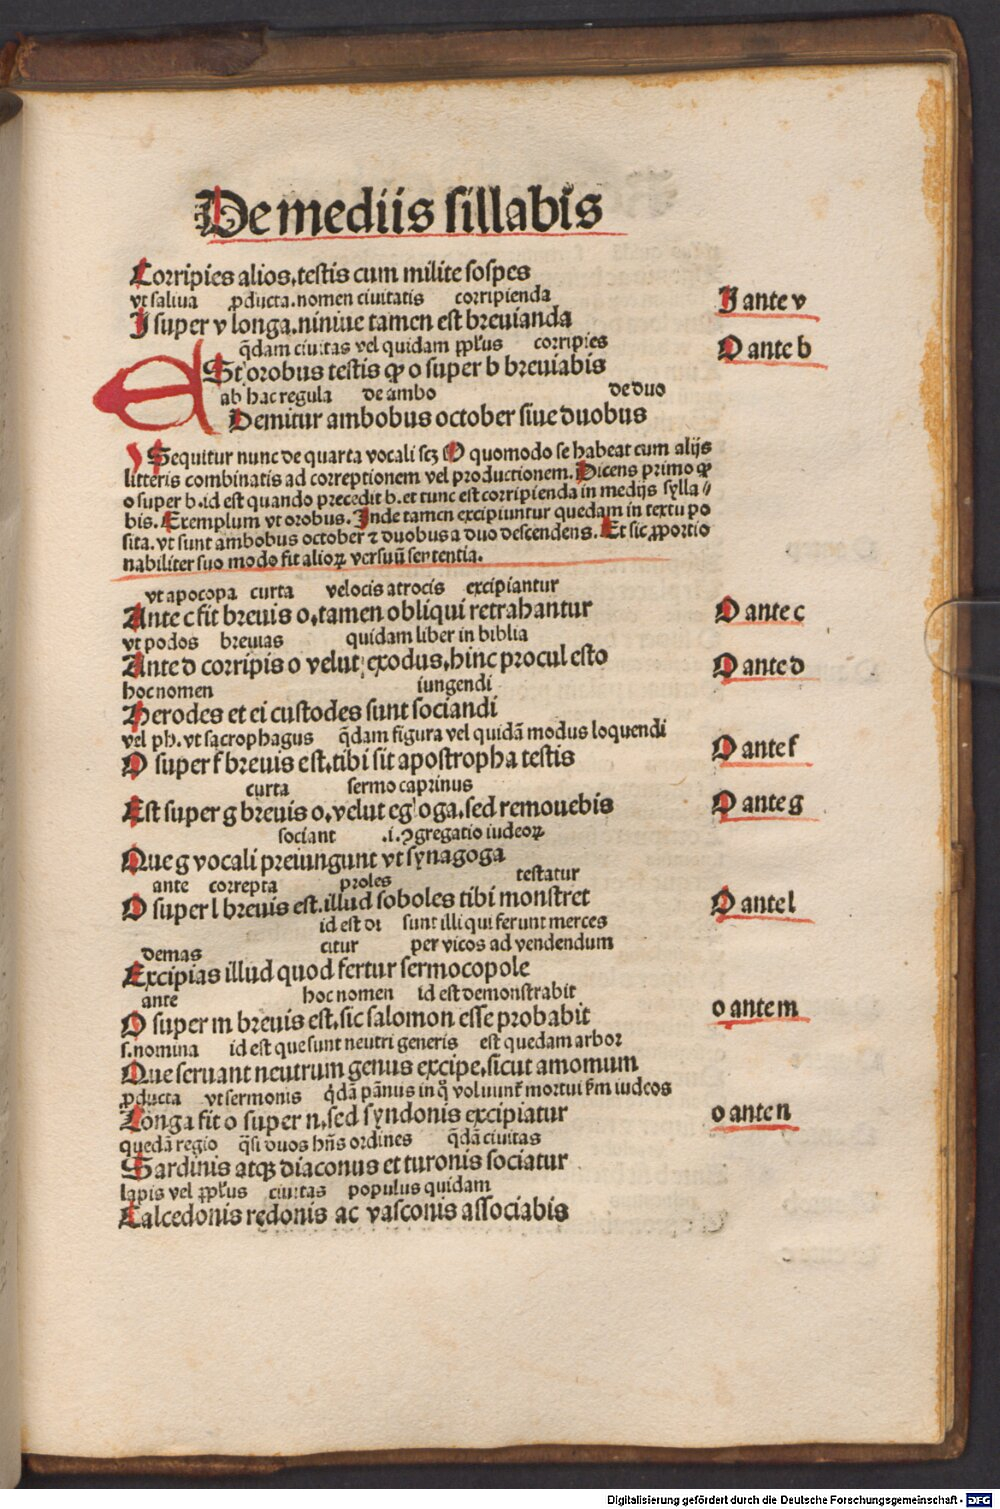 De mediis sillabis
Corripies alios, testis cum milite sospes
vt saliua ꝓducta. nomen ciuitatis corripienda
I super v longa. niniue tamen est breuianda
I ante v
q̄dam ciuitas vel quidam ꝓph̓us corripies
ESt orobus testis ꝙ o super b breuiabis
O ante b
ab hac regula de ambo de duo
Demitur ambobus october siue duobus
Sequitur nunc de quarta vocali scꝫ O quomodo se habeat cum alijs
litteris combinatis ad correptionem vel productionem. Dicens primo ꝙ
o super b. id est quando precedit b. et tunc est corripienda in medijs sylla⸗
bis. Exemplum vt orobus. Inde tamen excipiuntur quedam in textu po
sita. vt sunt ambobus october ⁊ duobus a duo descendens. Et sic ꝓportio
nabiliter suo modo fit alioꝝ versuū sententia.
vt apocopa curta velocis atrocis excipiantur
Ante c fit breuis o, tamen obliqui retrahantur
O ante c
vt podos breuias quidam liber in biblia
Ante d corripis o velut exodus, hinc procul esto
O ante d
hoc nomen iungendi
Herodes et ei custodes sunt sociandi
vel ph. vt sacrophagus q̄dam figura vel quidā modus loquendi
O super f breuis est, tibi sit apostropha testis
O ante f
curta sermo caprinus
Est super g breuis o, velut egloga, sed remouebis
O ante g
sociant .i. ꝯgregatio iudeoꝝ
Que g vocali preiungunt vt synagoga
ante correpta proles testatur
O super l breuis est. illud soboles tibi monstret
O ante l
id est di sunt illi qui ferunt merces
demas citur per vicos ad vendendum
Excipias illud quod fertur sermocopole
ante hoc nomen id est demonstrabit
O super m breuis est, sic salomon esse probabit
o ante m
s. nomina id est que sunt neutri generis est quedam arbor
Que seruant neutrum genus excipe, sicut amomum
ꝓducta vt sermonis q̄dā pānus in q̊ voluunt᷑ mortui km̄ iudeos
Longa fit o super n, sed syndonis excipiatur
o ante n
quedā regio q̄si duos hn̄s ordines q̄dā ciuitas
Sardinis atqꝫ diaconus et turonis sociatur
lapis vel ꝓph̓us ciuitas populus quidam
Calcedonis redonis ac vasconis associabis
Digitalisierung gefördert durch die Deutsche Forschungsgemeinschaft - DFG